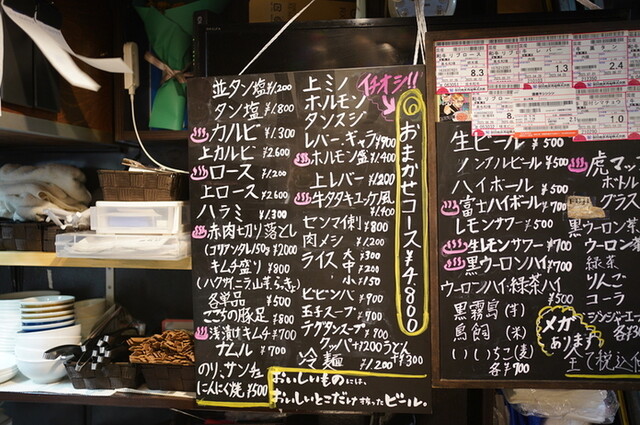 並タン塩 ¥1,200
タン塩 ¥1,800
カルビ ¥1,300
上カルビ ¥2,600
ロース ¥1,200
上ロース ¥2,600
ハラミ ¥1,300
赤肉切り落とし
¥2000
キムチ盛り ¥800
各単品 ¥500
こころの豚足 ¥800
浅漬けキムチ ¥700
ナムル ¥700
のり、サンチュ
にんにく焼 ¥500
上ミノ
ホルモン
タンスジ
イチオシ!!
レバー・ギャラ ¥900
ホルモン盛 ¥1,400
上レバー ¥1,200
牛タタキユッケ風
¥1,400
センマイ刺 ¥800
肉メシ ¥1,200
ライス 大 ¥300
中 ¥200
小 ¥150
ビビンバ ¥900
玉子スープ ¥700
クッパ +200 うどん +¥300
冷麺 ¥1,200
おまかせコース ¥4,800
おいしいものには、
おいしいとこだけ
ビール。
8.3
1.3
2.4
8.0
1.2
1.0
生ビール ¥500
ノンアルビール ¥500
ハイボール ¥500
富士ハイボール ¥700
レモンサワー ¥500
生レモンサワー ¥700
黒ウーロンハイ ¥700
ウーロンハイ・緑茶ハイ ¥500
黒霧島 (芋)
鳥飼 (米)
いいちこ (麦)
各¥700
虎マッ
ボトル
グラス
黒ウーロン茶
ウーロン茶
緑茶
りんご
コーラ
メガ
あります
全て税込